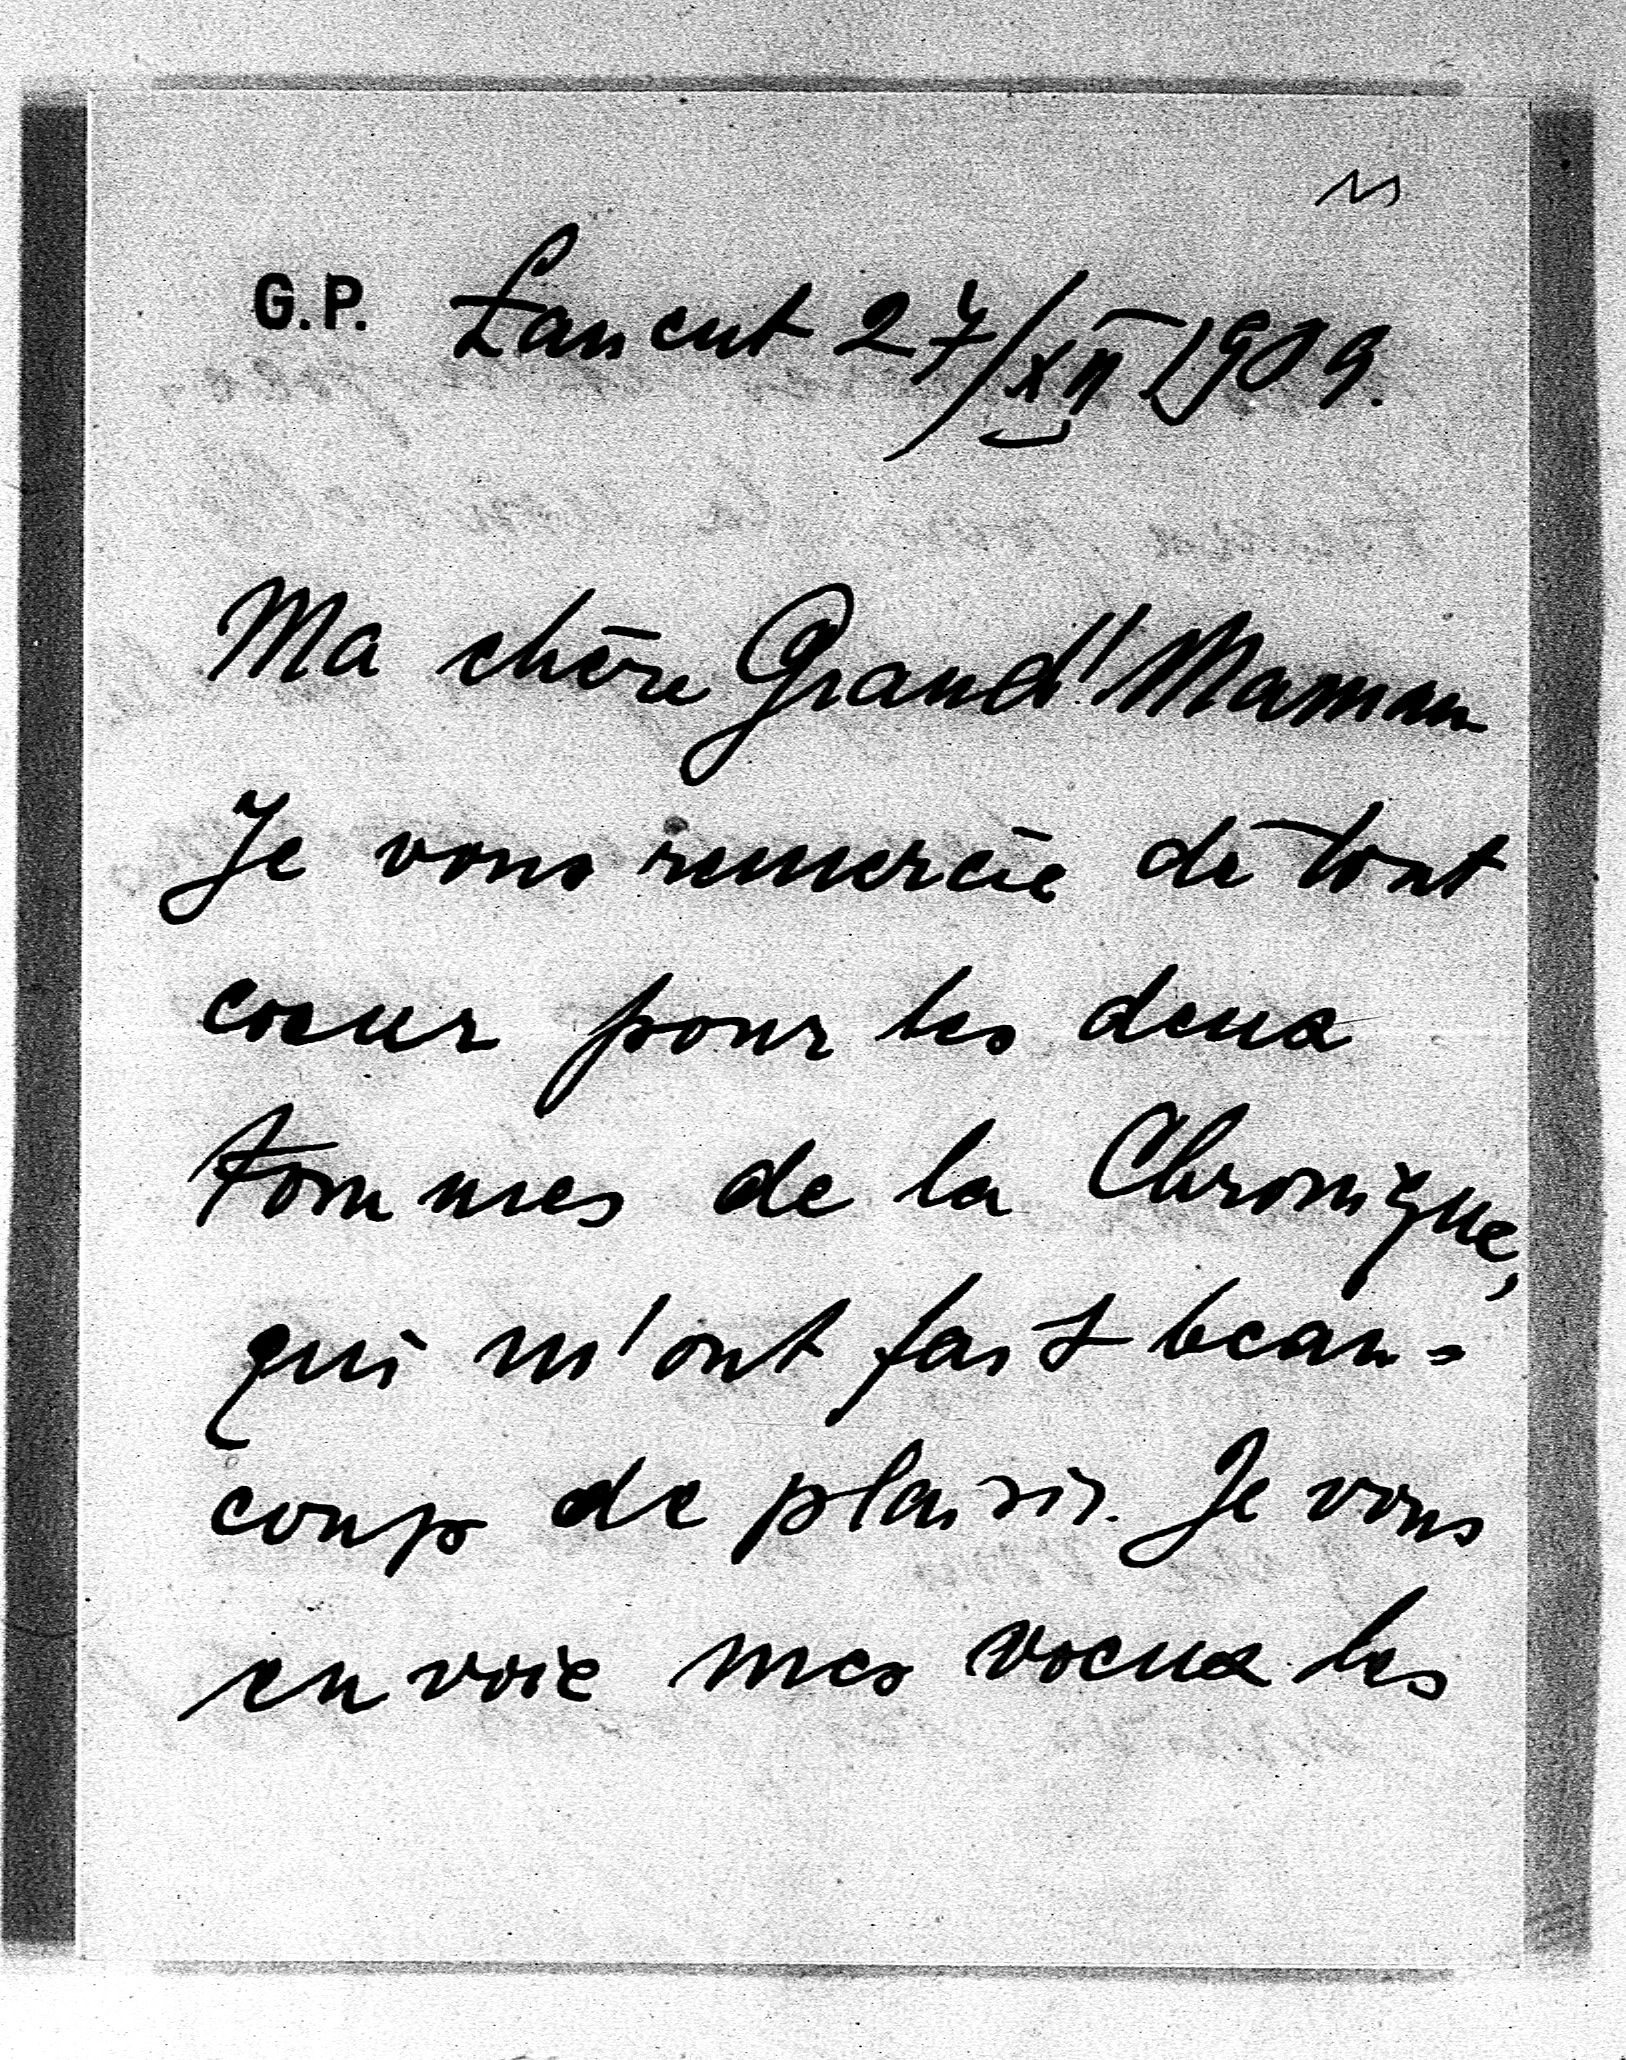 G.P. Łancut 27/XII 1909.
Ma chère Grand'Maman
Je vous remercie de tout
coeur pour les deux
tommes de la Chronique,
qui m'ont fait beau=
coup de plaisir. Je vous
envoie mes voeux les